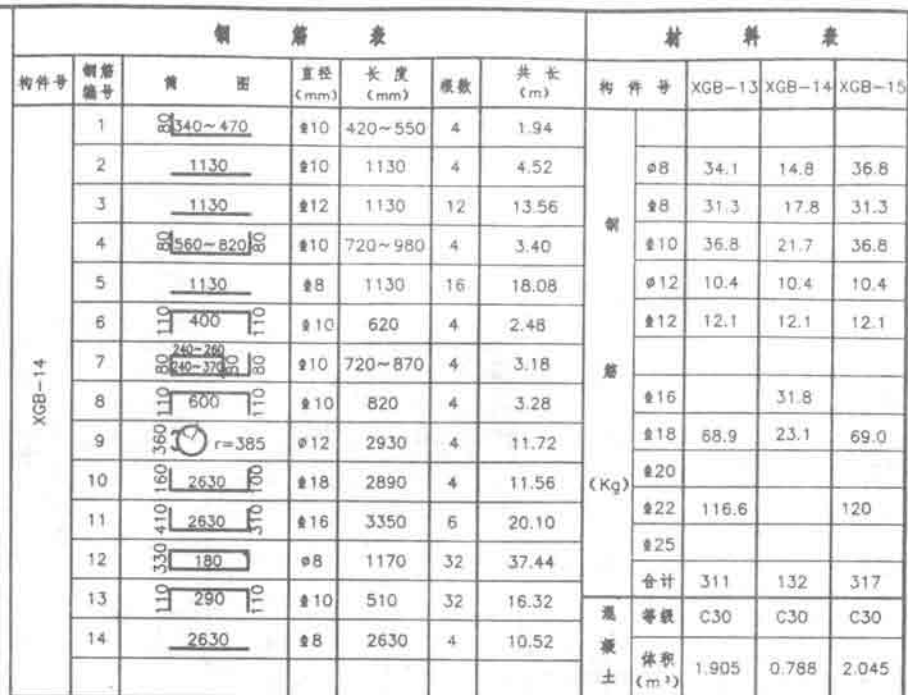 钢 筋 表
材 料 表
构件号 钢筋编号 简 图 直径(mm) 长 度(mm) 根数 共 长(m)
构 件 号 XGB-13 XGB-14 XGB-15
XGB-14
1 80 340~470 ⏀10 420~550 4 1.94
2 1130 ⏀10 1130 4 4.52
3 1130 ⏀12 1130 12 13.56
4 80 560~820 80 ⏀10 720~980 4 3.40
5 1130 ⏀8 1130 16 18.08
6 110 400 110 ⏀10 620 4 2.48
7 80 240~260 240~370 80 80 ⏀10 720~870 4 3.18
8 110 600 110 ⏀10 820 4 3.28
9 360 r=385 ø12 2930 4 11.72
10 160 2630 100 ⏀18 2890 4 11.56
11 410 2630 310 ⏀16 3350 6 20.10
12 330 180 ø8 1170 32 37.44
13 110 290 110 ⏀10 510 32 16.32
14 2630 ⏀8 2630 4 10.52
钢筋(Kg)
ø8 34.1 14.8 36.8
⏀8 31.3 17.8 31.3
⏀10 36.8 21.7 36.8
ø12 10.4 10.4 10.4
⏀12 12.1 12.1 12.1
⏀16 31.8
⏀18 68.9 23.1 69.0
⏀20
⏀22 116.6 120
⏀25
合计 311 132 317
混凝土
等级 C30 C30 C30
体积(m³) 1.905 0.788 2.045